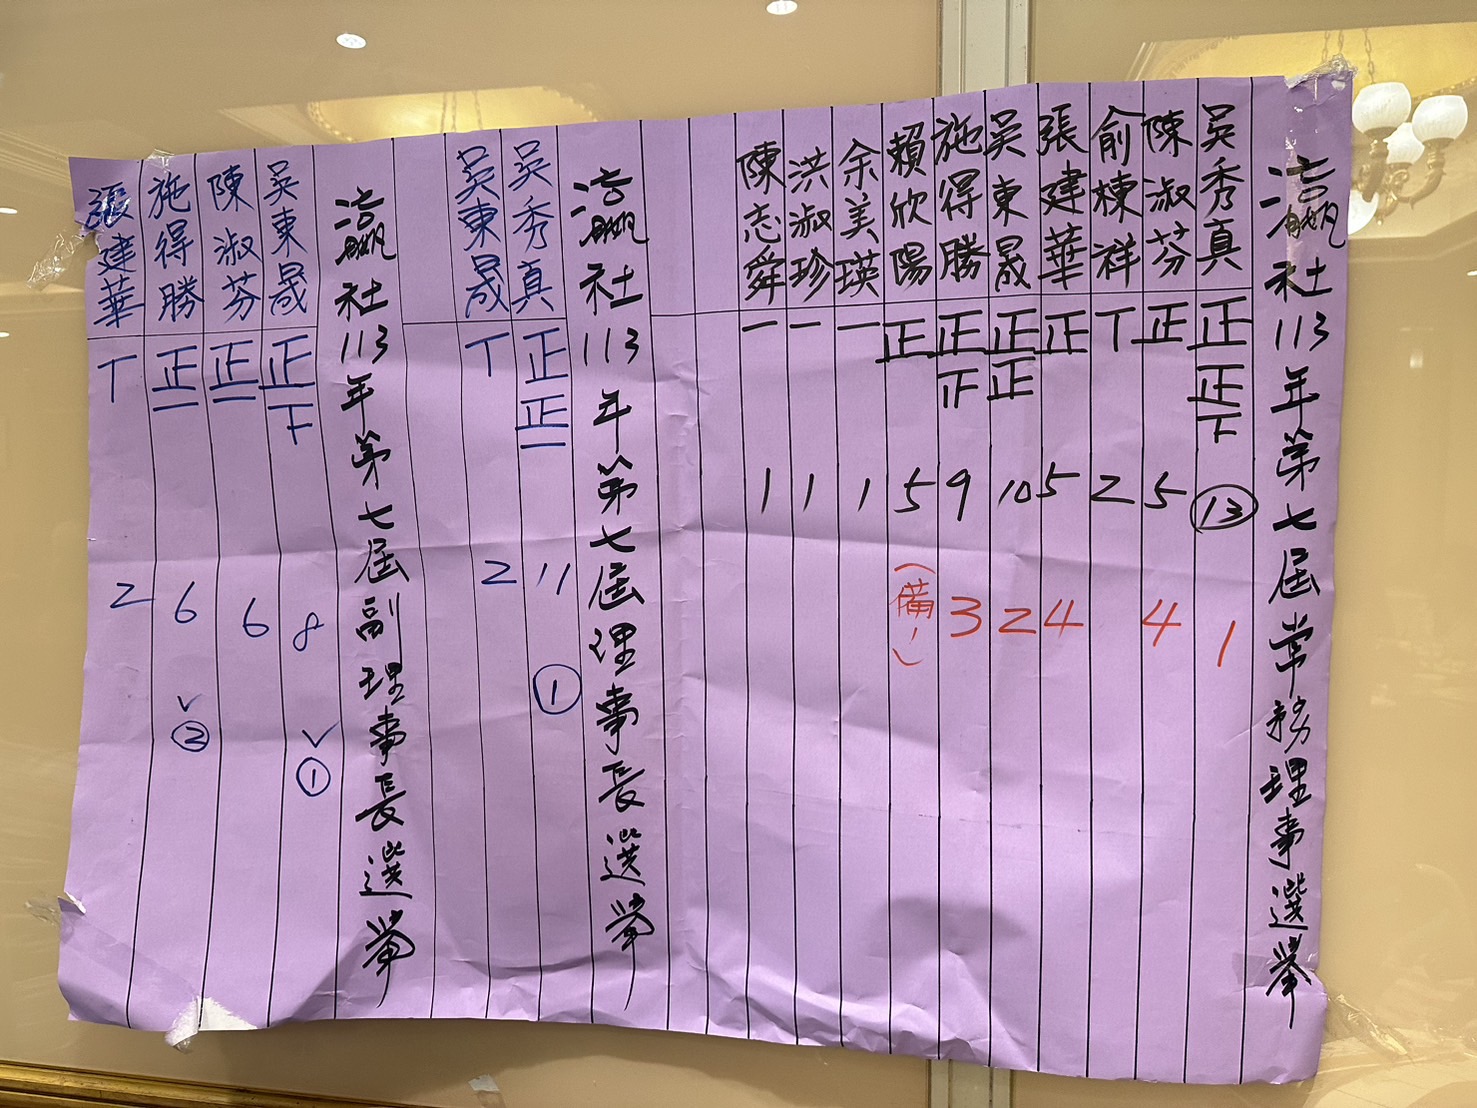 瀛社113年第七屆常務理事選舉
吳秀真 正正下 13 1
陳淑芬 正 5 4
俞棟祥 丅 2
張建華 正 5 4
吳東晟 正正 10 2
施得勝 正 9 3
賴欣陽 正 5 (備1)
余美瑛 一 1
洪淑珍 一 1
陳志舜 一 1
瀛社113年第七屆理事長選舉
吳秀真 正正一 11 ①
吳東晟 丅 2
瀛社113年第七屆副理事長選舉
吳東晟 正下 8 ✓ ①
陳淑芬 正一 6
施得勝 正一 6 ✓ ②
張建華 丅 2